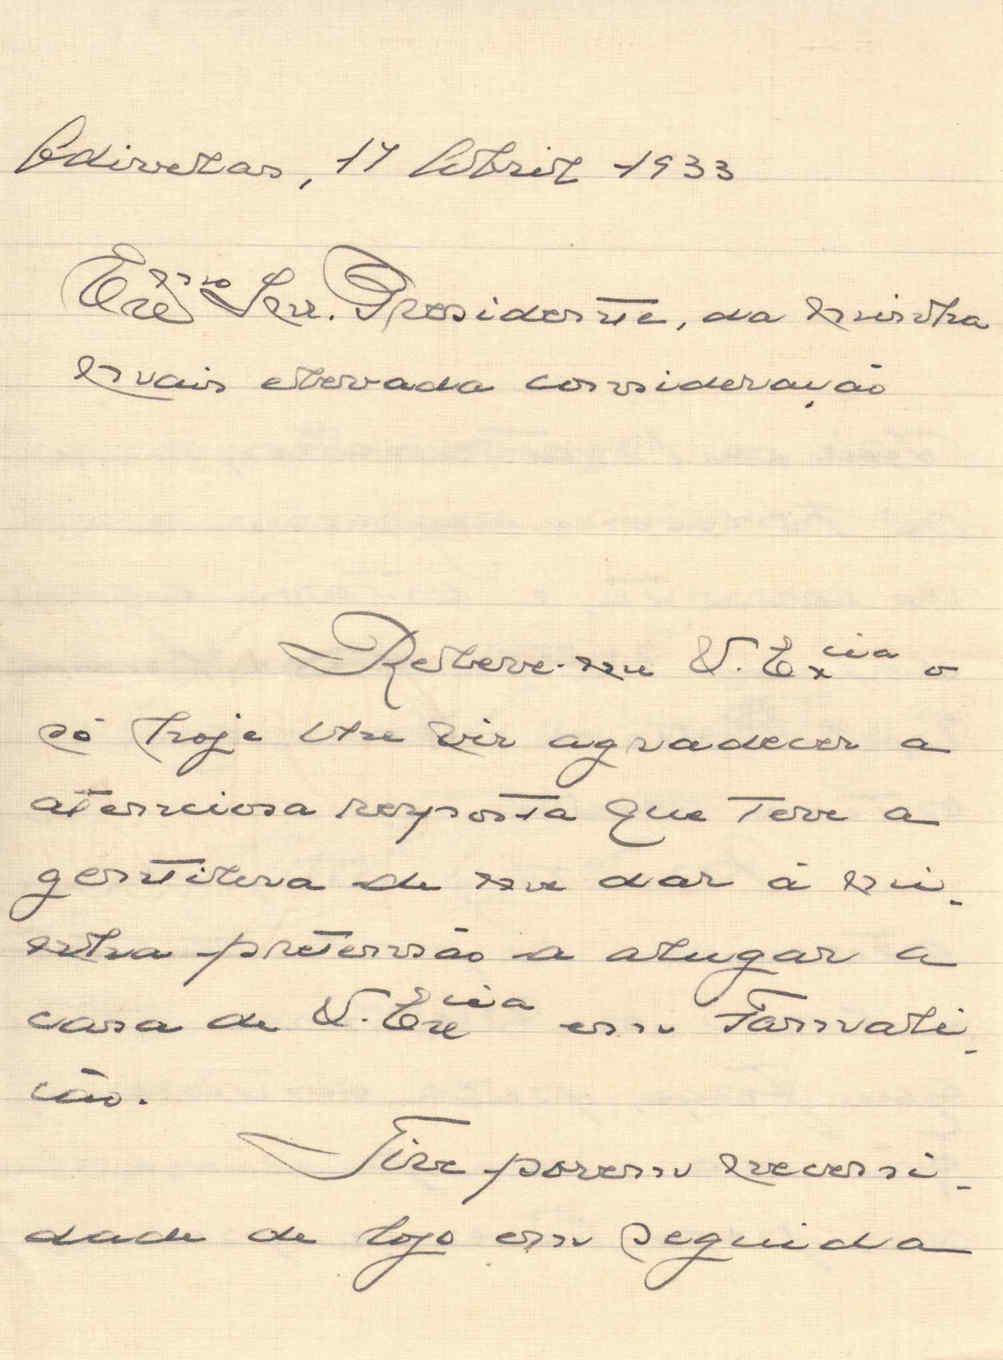 Odivelas, 17 Abril 1933
Exmo Snr. Presidente, da minha
mais elevada consideração
Releve-me V. Excia o
só hoje lhe vir agradecer a
atenciosa resposta que teve a
gentileza de me dar á mi-
nha pretensão a alugar a
casa de V. Excia em Famali-
cão.
Tive porem necessi-
dade de logo em seguida